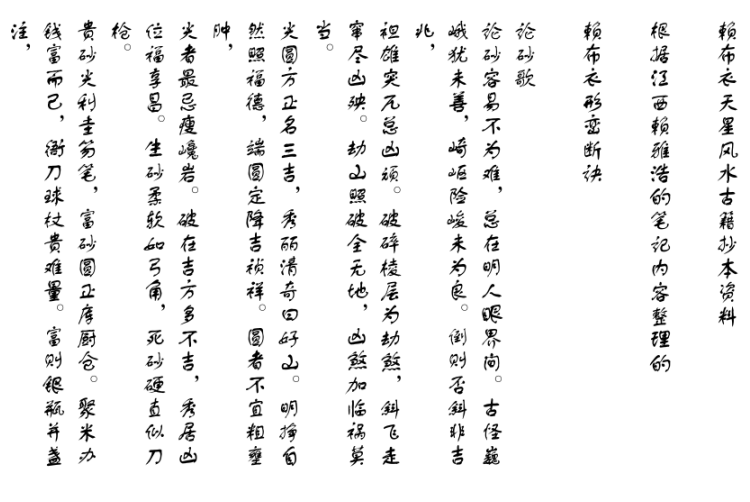 赖布衣天星风水古籍抄本资料
根据江西赖雅浩的笔记内容整理的
赖布衣形峦断诀
论砂歌
论砂容易不为难，总在明人眼界间。古怪巍
峨犹未善，崎岖险峻未为良。倒则否斜非吉
兆，
袒雄突兀总凶顽。破碎棱层为劫煞，斜飞走
窜尽凶殃。劫山照破全无地，凶煞加临祸莫
当。
尖圆方正名三吉，秀丽清奇曰好山。明挣自
然照福德，端圆定降吉祯祥。圆者不宜粗壅
肿，
尖者最忌瘦巉岩。破在吉方多不吉，秀居凶
位福享昌。生砂柔软如弓角，死砂硬直似刀
枪。
贵砂尖利圭笏笔，富砂圆正库厨仓。聚米办
钱富而已，衙刀球杖贵难量。富则银瓶并盏
注，